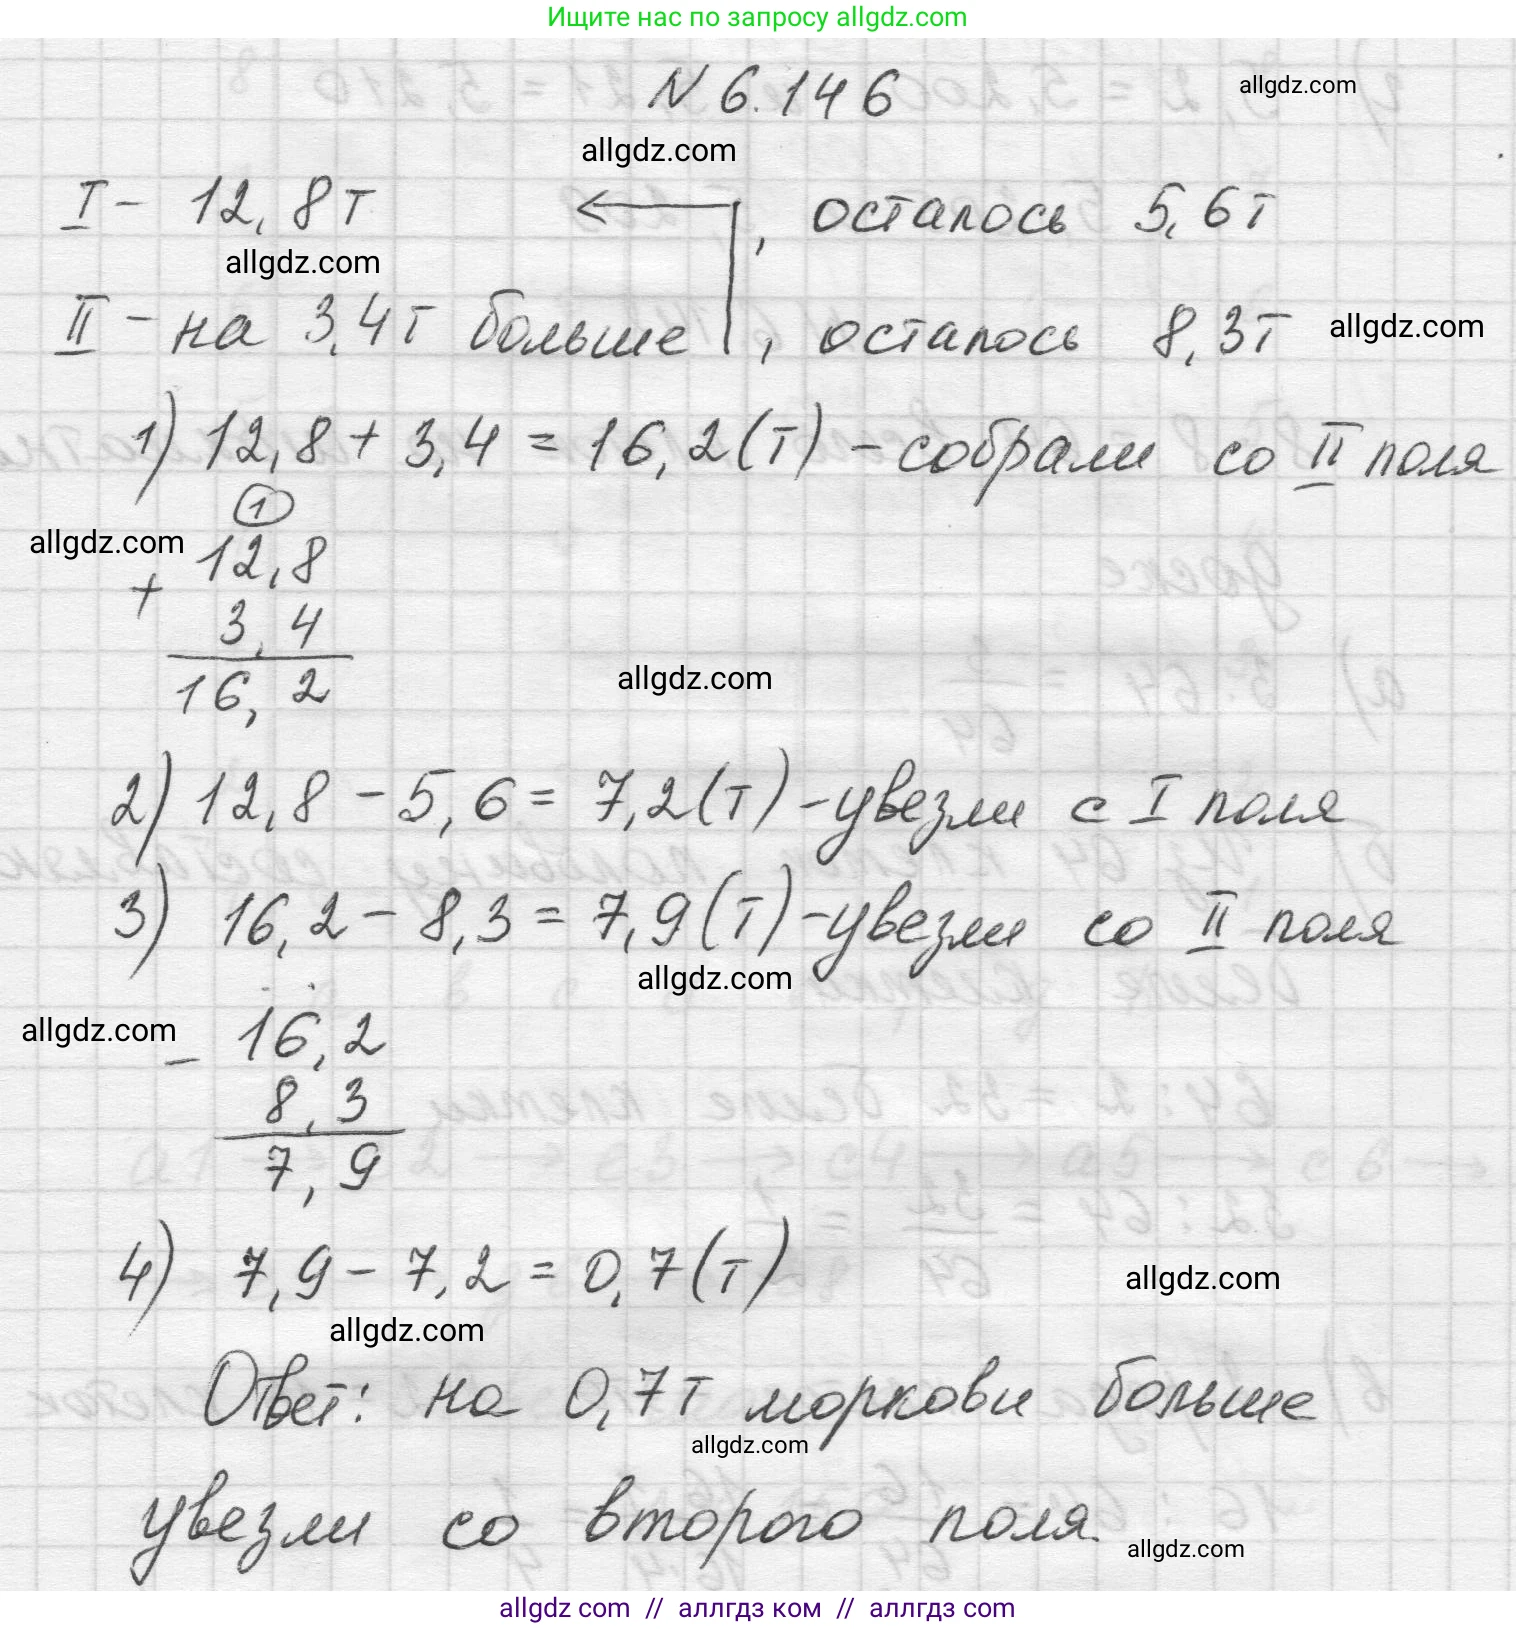 Ищите нас по запросу allgdz.com
N 6.146
allgdz.com
allgdz.com
I - 12,8т ←, осталось 5,6т
allgdz.com
II - на 3,4т больше, осталось 8,3т
allgdz.com
1) 12,8 + 3,4 = 16,2(т) - собрали со II поля
1
allgdz.com
12,8
+
3,4
16,2
allgdz.com
2) 12,8 - 5,6 = 7,2(т) - увезли с I поля
3) 16,2 - 8,3 = 7,9(т) - увезли со II поля
allgdz.com
allgdz.com
- 16,2
8,3
7,9
4) 7,9 - 7,2 = 0,7(т)
allgdz.com
allgdz.com
Ответ: на 0,7т моркови больше
allgdz.com
увезли со второго поля.
allgdz.com
allgdz com // аллгдз ком // аллгдз com